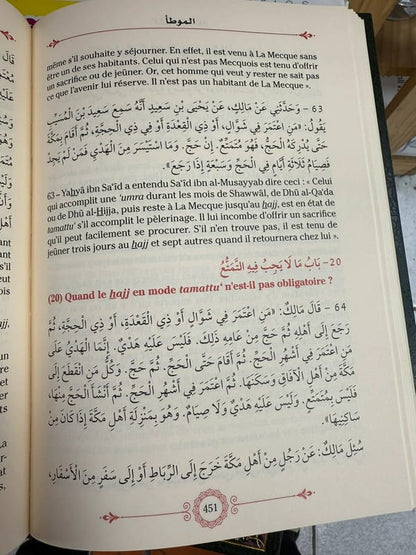 الموطأ
même s'il souhaite y séjourner. En effet, il est venu à La Mecque sans
être un de ses habitants. Celui qui n'est pas Mecquois est tenu d'offrir
un sacrifice ou de jeûner. Or, cet homme qui veut y rester ne sait pas
ce que l'avenir lui réserve. Il n'est pas un habitant de La Mecque ».
63 – وَحَدَّثَنِي عَنْ مَالِكٍ، عَنْ يَحْيَى بْنِ سَعِيدٍ أَنَّهُ سَمِعَ سَعِيدَ بْنَ الْمُسَيَّبِ
يَقُولُ: «مَنِ اعْتَمَرَ فِي شَوَّالٍ، أَوْ ذِي الْقِعْدَةِ أَوْ فِي ذِي الْحِجَّةِ، ثُمَّ أَقَامَ بِمَكَّةَ
حَتَّى يُدْرِكَهُ الْحَجُّ، فَهُوَ مُتَمَتِّعٌ. إِنْ حَجَّ. وَمَا اسْتَيْسَرَ مِنَ الْهَدْيِ فَمَنْ لَمْ يَجِدْ
فَصِيَامُ ثَلَاثَةِ أَيَّامٍ فِي الْحَجِّ وَسَبْعَةٍ إِذَا رَجَعَ».
63 – Yahyâ ibn Sa'îd a entendu Sa'îd ibn al-Musayyab dire ceci : « Celui
qui accomplit une 'umra durant les mois de Shawwâl, de Dhû al-Qa'da
ou de Dhû al-Hijja, puis reste à La Mecque jusqu'au hajj, est en état de
tamattu' s'il accomplit le pèlerinage. Il lui incombe d'offrir un sacrifice
qu'il peut facilement se procurer. S'il n'en trouve pas, il est tenu de
jeûner trois jours au hajj et sept autres quand il retournera chez lui ».
20– بَابُ مَا لَا يَجِبُ فِيهِ التَّمَتُّعُ
(20) Quand le hajj en mode tamattu' n'est-il pas obligatoire ?
64 – قَالَ مَالِكٌ: «مَنِ اعْتَمَرَ فِي شَوَّالٍ أَوْ ذِي الْقَعْدَةِ، أَوْ ذِي الْحِجَّةِ، ثُمَّ
رَجَعَ إِلَى أَهْلِهِ ثُمَّ حَجَّ مِنْ عَامِهِ ذَلِكَ. فَلَيْسَ عَلَيْهِ هَدْيٌ. إِنَّمَا الْهَدْيُ عَلَى
مَنِ اعْتَمَرَ فِي أَشْهُرِ الْحَجِّ. ثُمَّ أَقَامَ حَتَّى الْحَجِّ. ثُمَّ حَجَّ. وَكُلُّ مَنِ انْقَطَعَ إِلَى
مَكَّةَ مِنْ أَهْلِ الْآفَاقِ وَسَكَنَهَا. ثُمَّ اعْتَمَرَ فِي أَشْهُرِ الْحَجِّ. ثُمَّ أَنْشَأَ الْحَجَّ مِنْهَا،
فَلَيْسَ بِمُتَمَتِّعٍ. وَلَيْسَ عَلَيْهِ هَدْيٌ وَلَا صِيَامٌ. وَهُوَ بِمَنْزِلَةِ أَهْلِ مَكَّةَ إِذَا كَانَ مِنْ
سَاكِنِيهَا».
سُئِلَ مَالِكٌ: عَنْ رَجُلٍ مِنْ أَهْلِ مَكَّةَ خَرَجَ إِلَى الرِّبَاطِ أَوْ إِلَى سَفَرٍ مِنَ الْأَسْفَارِ،
451